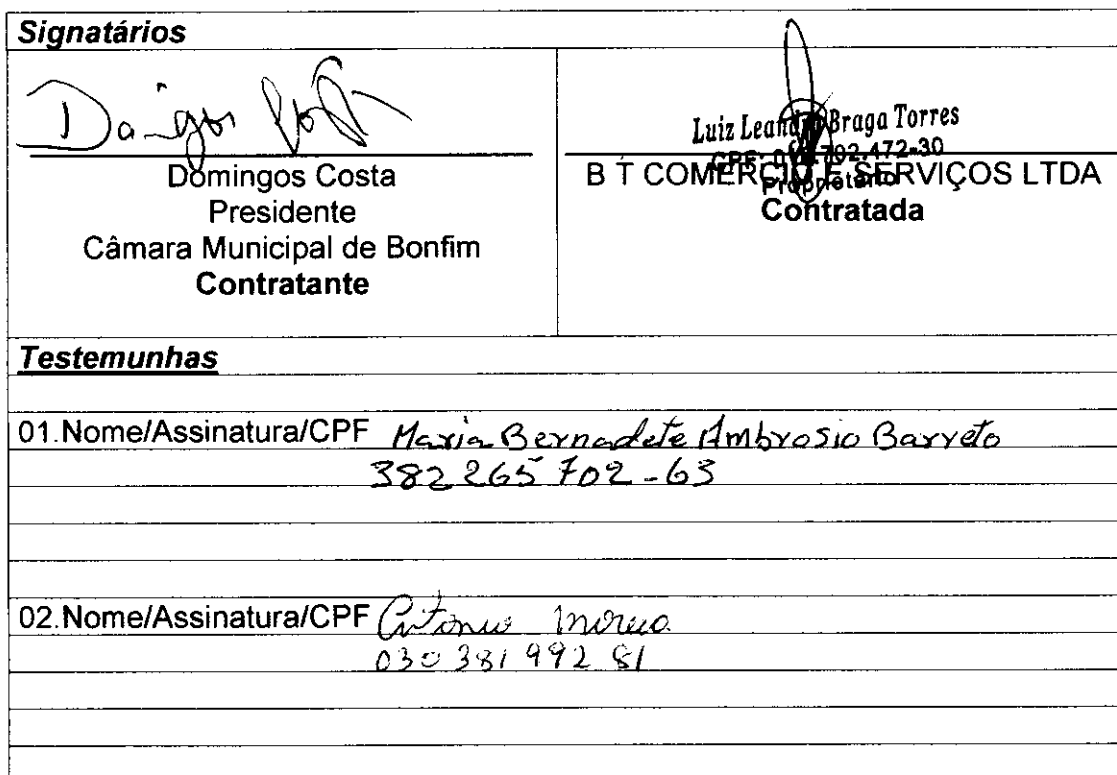 Signatários
Domingos Costa
Presidente
Câmara Municipal de Bonfim
Contratante
Luiz Leandro Braga Torres
CPF: 792.472-30
Proprietário
B T COMERCIO E SERVIÇOS LTDA
Contratada
Testemunhas
01.Nome/Assinatura/CPF Maria Bernadete Ambrosio Barreto
382 265 702-63
02.Nome/Assinatura/CPF
030 381 992